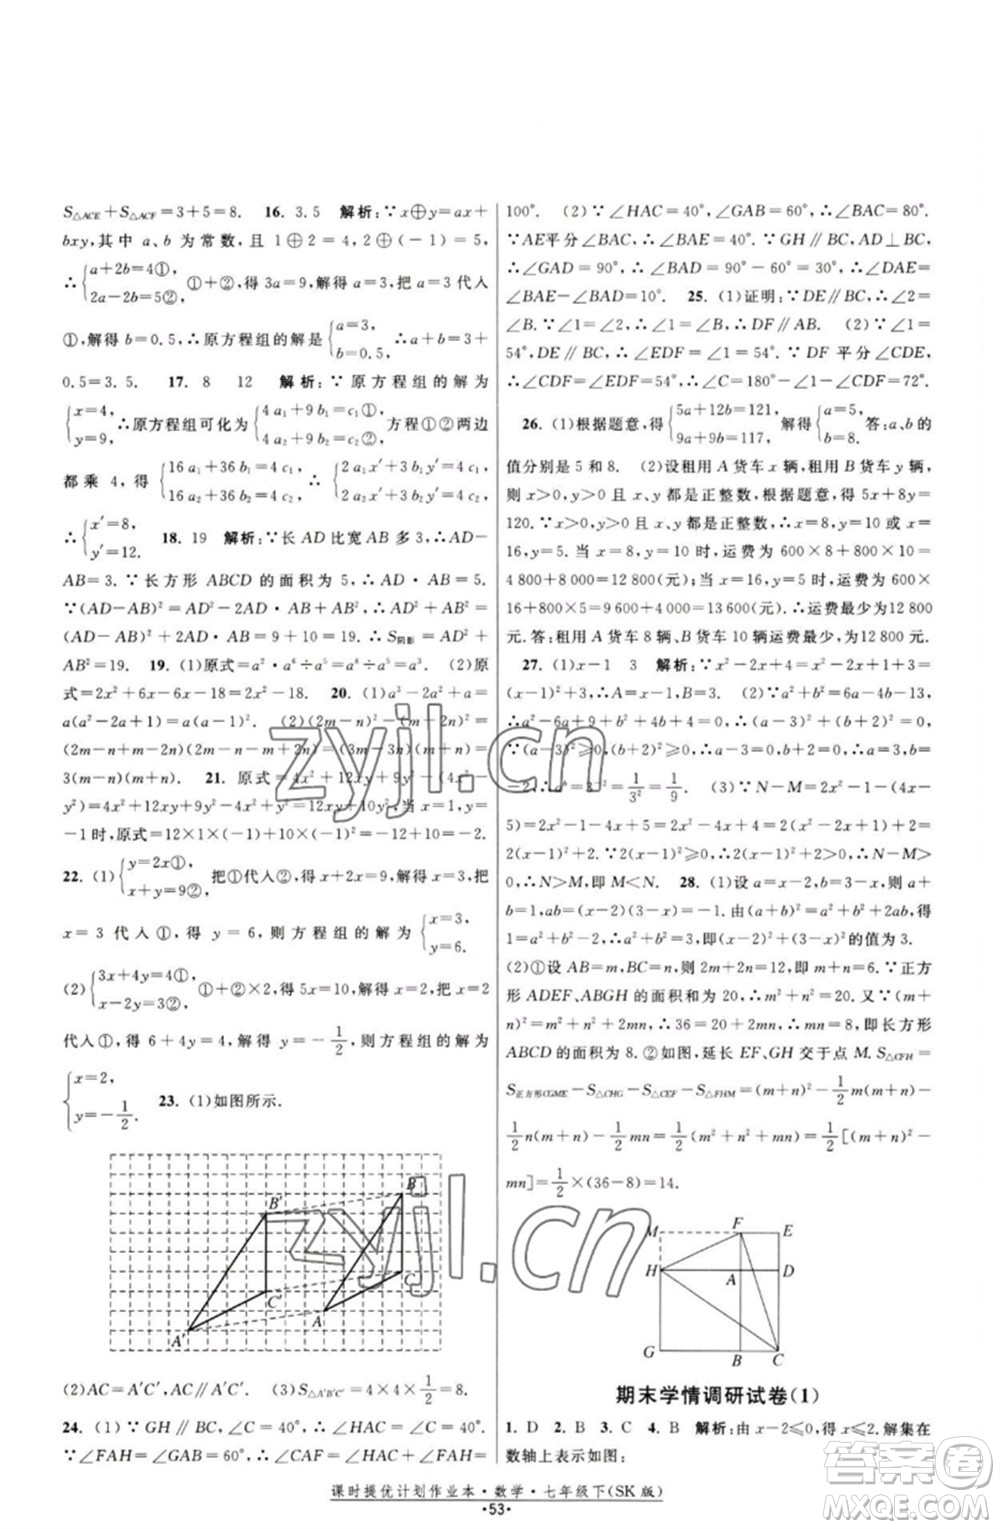 S△ACE+S△ACF=3+5=8. 16. 3.5 解析:∵x⊕y=ax+
bxy,其中 a、b 为常数,且 1⊕2=4,2⊕(-1)=5,
∴{a+2b=4①, 2a-2b=5② ①+②,得 3a=9,解得 a=3,把 a=3 代入
①,解得 b=0.5,∴原方程组的解为{a=3, b=0.5, ∴a+b=3+
0.5=3.5. 17. 8 12 解析:∵原方程组的解为
{x=4, y=9, ∴原方程组可化为{4a₁+9b₁=c₁①, 4a₂+9b₂=c₂② 方程组①②两边
都乘 4,得{16a₁+36b₁=4c₁, 16a₂+36b₂=4c₂ ∴{2a₁x′+3b₁y′=4c₁, 2a₂x′+3b₂y′=4c₂
∴{x′=8, y′=12. 18. 19 解析:∵长 AD 比宽 AB 多 3,∴AD-
AB=3. ∵长方形 ABCD 的面积为 5,∴AD·AB=5.
∵(AD-AB)²=AD²+AB²-2AD·AB,∴AD²+AB²=
(AD-AB)²+2AD·AB=9+10=19. ∴S阴影=AD²+
AB²=19. 19. (1)原式=a²·a⁶÷a⁵=a⁸÷a⁵=a³. (2)原
式=2(x²-9)=2x²-18. 20. (1)a³-2a²+a=
a(a²-2a+1)=a(a-1)². (2)(2m-n)²-(m-2n)²=
(2m-n+m-2n)(2m-n-m+2n)=(3m-3n)(m+n)=
3(m-n)(m+n). 21. 原式=4x²+12xy+9y²-(4x²-
y²)=4x²+12xy+9y²-4x²+y²=12xy+10y². 当 x=1,y=
-1时,原式=12×1×(-1)+10×(-1)²=-12+10=-2.
22. (1){y=2x①, x+y=9②, 把①代入②,得 x+2x=9,解得 x=3,把
x=3 代入①,得 y=6,则方程组的解为{x=3, y=6.
(2){3x+4y=4①, x-2y=3②, ①+②×2,得 5x=10,解得 x=2,把 x=2
代入①,得 6+4y=4,解得 y=-1/2,则方程组的解为
{x=2, y=-1/2. 23. (1)如图所示.
B′
B
C′
C
A
A′
(2)AC=A′C′,AC∥A′C′. (3)S△A′B′C′=4×4×1/2=8.
24. (1)∵GH∥BC,∠C=40°,∴∠HAC=∠C=40°.
∵∠FAH=∠GAB=60°,∴∠CAF=∠HAC+∠FAH=
100°. (2)∵∠HAC=40°,∠GAB=60°,∴∠BAC=80°.
∵AE平分∠BAC,∴∠BAE=40°. ∵GH∥BC,AD⊥BC,
∴∠GAD=90°,∴∠BAD=90°-60°=30°,∴∠DAE=
∠BAE-∠BAD=10°. 25. (1)证明:∵DE∥BC,∴∠2=
∠B. ∵∠1=∠2,∴∠1=∠B,∴DF∥AB. (2)∵∠1=
54°,DE∥BC,∴∠EDF=∠1=54°. ∵DF 平分∠CDE,
∴∠CDF=∠EDF=54°,∴∠C=180°-∠1-∠CDF=72°.
26. (1)根据题意,得{5a+12b=121, 9a+9b=117, 解得{a=5, b=8. 答:a、b的
值分别是 5 和 8. (2)设租用 A 货车 x 辆,租用 B 货车 y 辆,
则 x>0,y>0,且 x、y 都是正整数,根据题意,得 5x+8y=
120. ∵x>0,y>0,且 x、y 都是正整数,∴x=8,y=10或x=
16,y=5. 当 x=8,y=10 时,运费为 600×8+800×10=
4 800+8 000=12 800(元);当 x=16,y=5 时,运费为 600×
16+800×5=9 600+4 000=13 600(元). ∴运费最少为12 800
元. 答:租用 A 货车 8 辆、B 货车 10 辆运费最少,为12 800元.
27. (1)x-1 3 解析:∵x²-2x+4=x²-2x+1+3=
(2)∵a²-2≥0,(b+2)²≥0,∴a-3=0,b+2=0,∴a=3,b=
-2,∴a^b=3⁻²=1/3²=1/9. (3)∵N-M=2x²-1-(4x-
5)=2x²-4x+4=2(x²-2x+2)=2(x²-2x+1+1)=
2(x-1)²+2. ∵(x-1)²≥0,∴2(x-1)²+2>0,∴N-M>0,
∴N>M,即 M<N. 28. (1)设 a=x-2,b=3-x,则 a+
b=1,ab=(x-2)(3-x)=-1. 由(a+b)²=a²+2ab+b²,得
a²+b²=(a+b)²-2ab=1+2=3,即(x-2)²+(3-x)²的值为 3.
(2)①设 AB=m,AD=n,则 2m+2n=12,∴m+n=6. ∵正方
形 ADEF、ABGH 的面积和为 20,∴m²+n²=20. 又∵(m+
n)²=m²+n²+2mn,∴36=20+2mn,∴mn=8,即长方形
ABCD 的面积为 8. ②如图,延长 EF、GH 交于点 M. S△CFH=
S正方形CGME-S△CHG-S△CEF-S△FHM=(m+n)²-1/2 m(m+n)-
1/2 n(m+n)-1/2 mn=(m+n)²-1/2(m²+n²+mn)=1/2[(m+n)²-
mn]=1/2×(36-8)=14.
M F E
H A D
G B C
期末学情调研试卷(1)
1. D 2. A 3. C 4. B 解析:由x-2≤0,得x≤2. 解集在
数轴上表示如图:
课时提优计划作业本·数学·七年级下(SK版)
·53·
zyjl.cn
zyjl.cn
答案圈
MXQE.COM